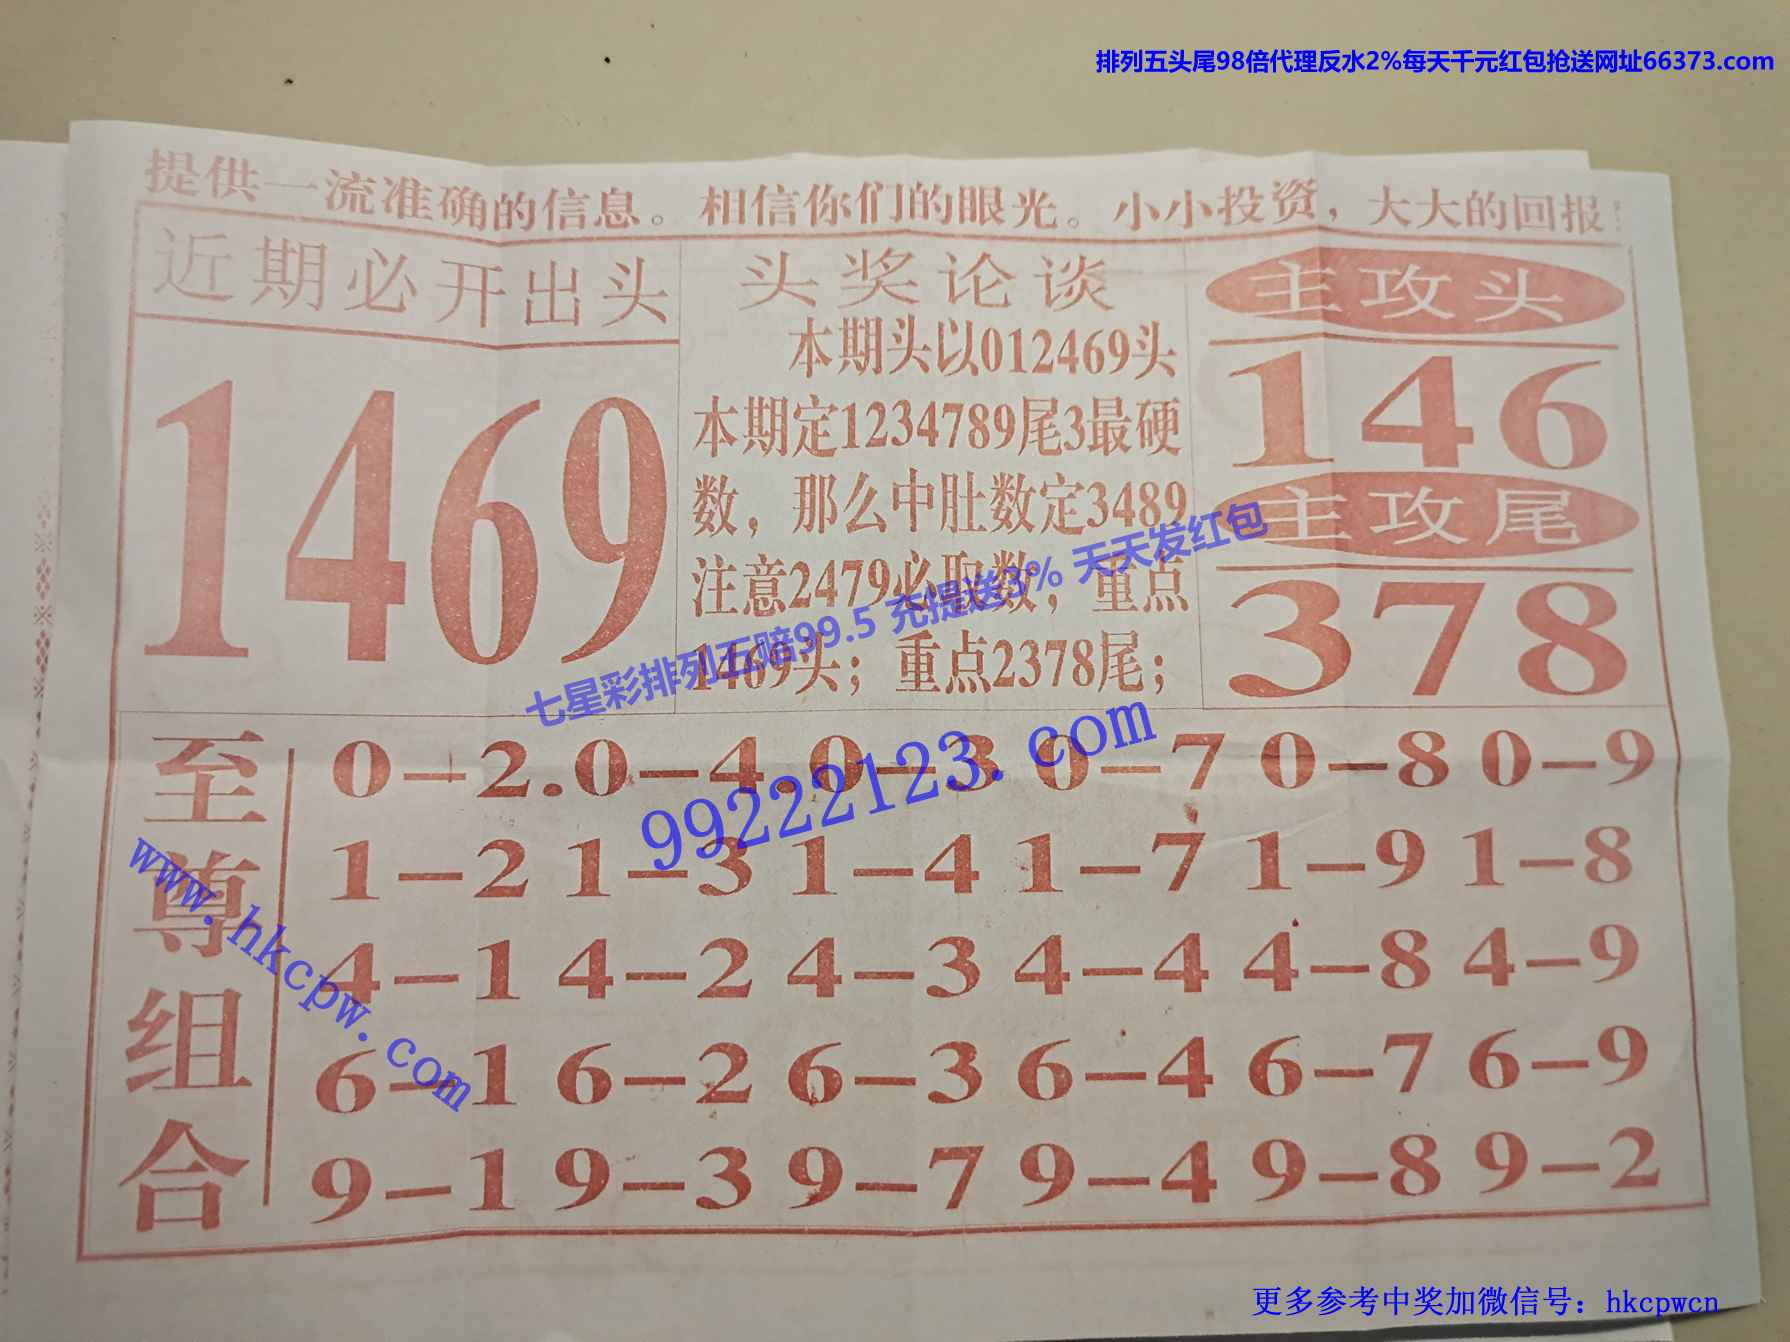 排列五头尾98倍代理反水2%每天千元红包抢送网址66373.com
提供一流准确的信息。相信你们的眼光。小小投资，大大的回报！
近期必开出头
1469
头奖论谈
本期头以012469头
本期定1234789尾3最硬
数，那么中肚数定3489
注意2479必取数；重点
1469头；重点2378尾；
主攻头
146
主攻尾
378
七星彩排列五赔99.5 充提送3% 天天发红包
99222123.com
至尊组合
0–2.0–4.0–3 0–7 0–8 0–9
1–2 1–3 1–4 1–7 1–9 1–8
4–1 4–2 4–3 4–4 4–8 4–9
6–1 6–2 6–3 6–4 6–7 6–9
9–1 9–3 9–7 9–4 9–8 9–2
www.hkcpw.com
更多参考中奖加微信号：hkcpwcn